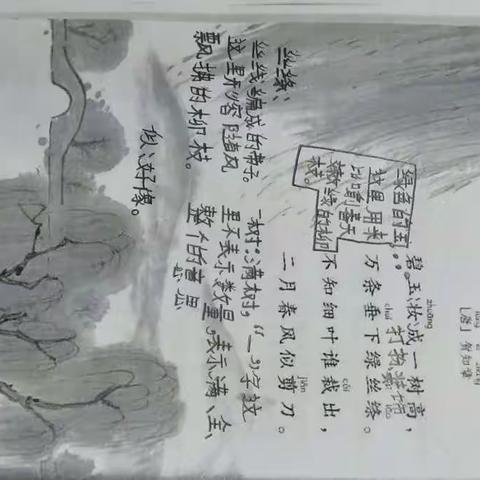 [唐] 贺知章
zhuāng
碧玉妆成一树高，
chuí
万条垂下绿丝绦。
cái
不知细叶谁裁出，
jiǎn
二月春风似剪刀。
绿色的玉,
这里用来
比喻春天
嫩绿的柳
枝。
打扮，装饰
丝绦：
丝线编成的带子。
这里形容随风
飘拂的柳枝。
一树：满树，“一”字这
里不表示数量，表示满、全、
整个的意思
似：好像。